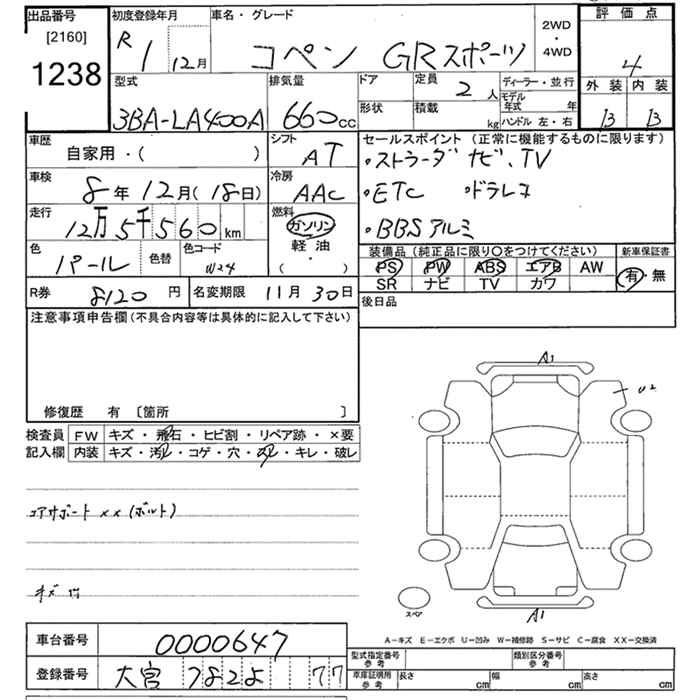 出品番号
[2160]
1238
初度登録年月
R 1 12月
車名・グレード
コペン GRスポーツ
2WD
・
4WD
評価点
4
外装 内装
B B
型式
3BA-LA400A
排気量
660cc
ドア
形状
定員
2人
積載
kg
ディーラー・並行
モデル年式 年
ハンドル 左・右
車歴
自家用・( )
シフト
AT
車検
8年12月(18日)
冷房
AAC
走行
12万5千560km
燃料
ガソリン
軽油
( ・ )
色
パール
色替
色コード
W24
セールスポイント(正常に機能するものに限ります)
・ストラーダ ナビ、TV
・ETC ・ドラレコ
・BBSアルミ
装備品(純正品に限り○をつけてください)
PS PW ABS エアB AW
SR ナビ TV カワ
新車保証書
有・無
R券 8120円
名変期限 11月30日
後日品
注意事項申告欄(不具合内容等は具体的に記入して下さい)
修復歴 有 〔箇所 〕
検査員
記入欄
FW キズ・飛石・ヒビ割・リペア跡・×要
内装 キズ・汚レ・コゲ・穴・スレ・キレ・破レ
コアサポート ××(ボルト)
A1
U2
A1
スペア
A-キズ E-エクボ U-凹み W-補修跡 S-サビ C-腐食 XX-交換済
車台番号 0000647
登録番号 大宮 782 よ 77
型式指定番号
参考
類別区分番号
参考
車庫証明用
参考
長さ cm 幅 cm 高さ cm